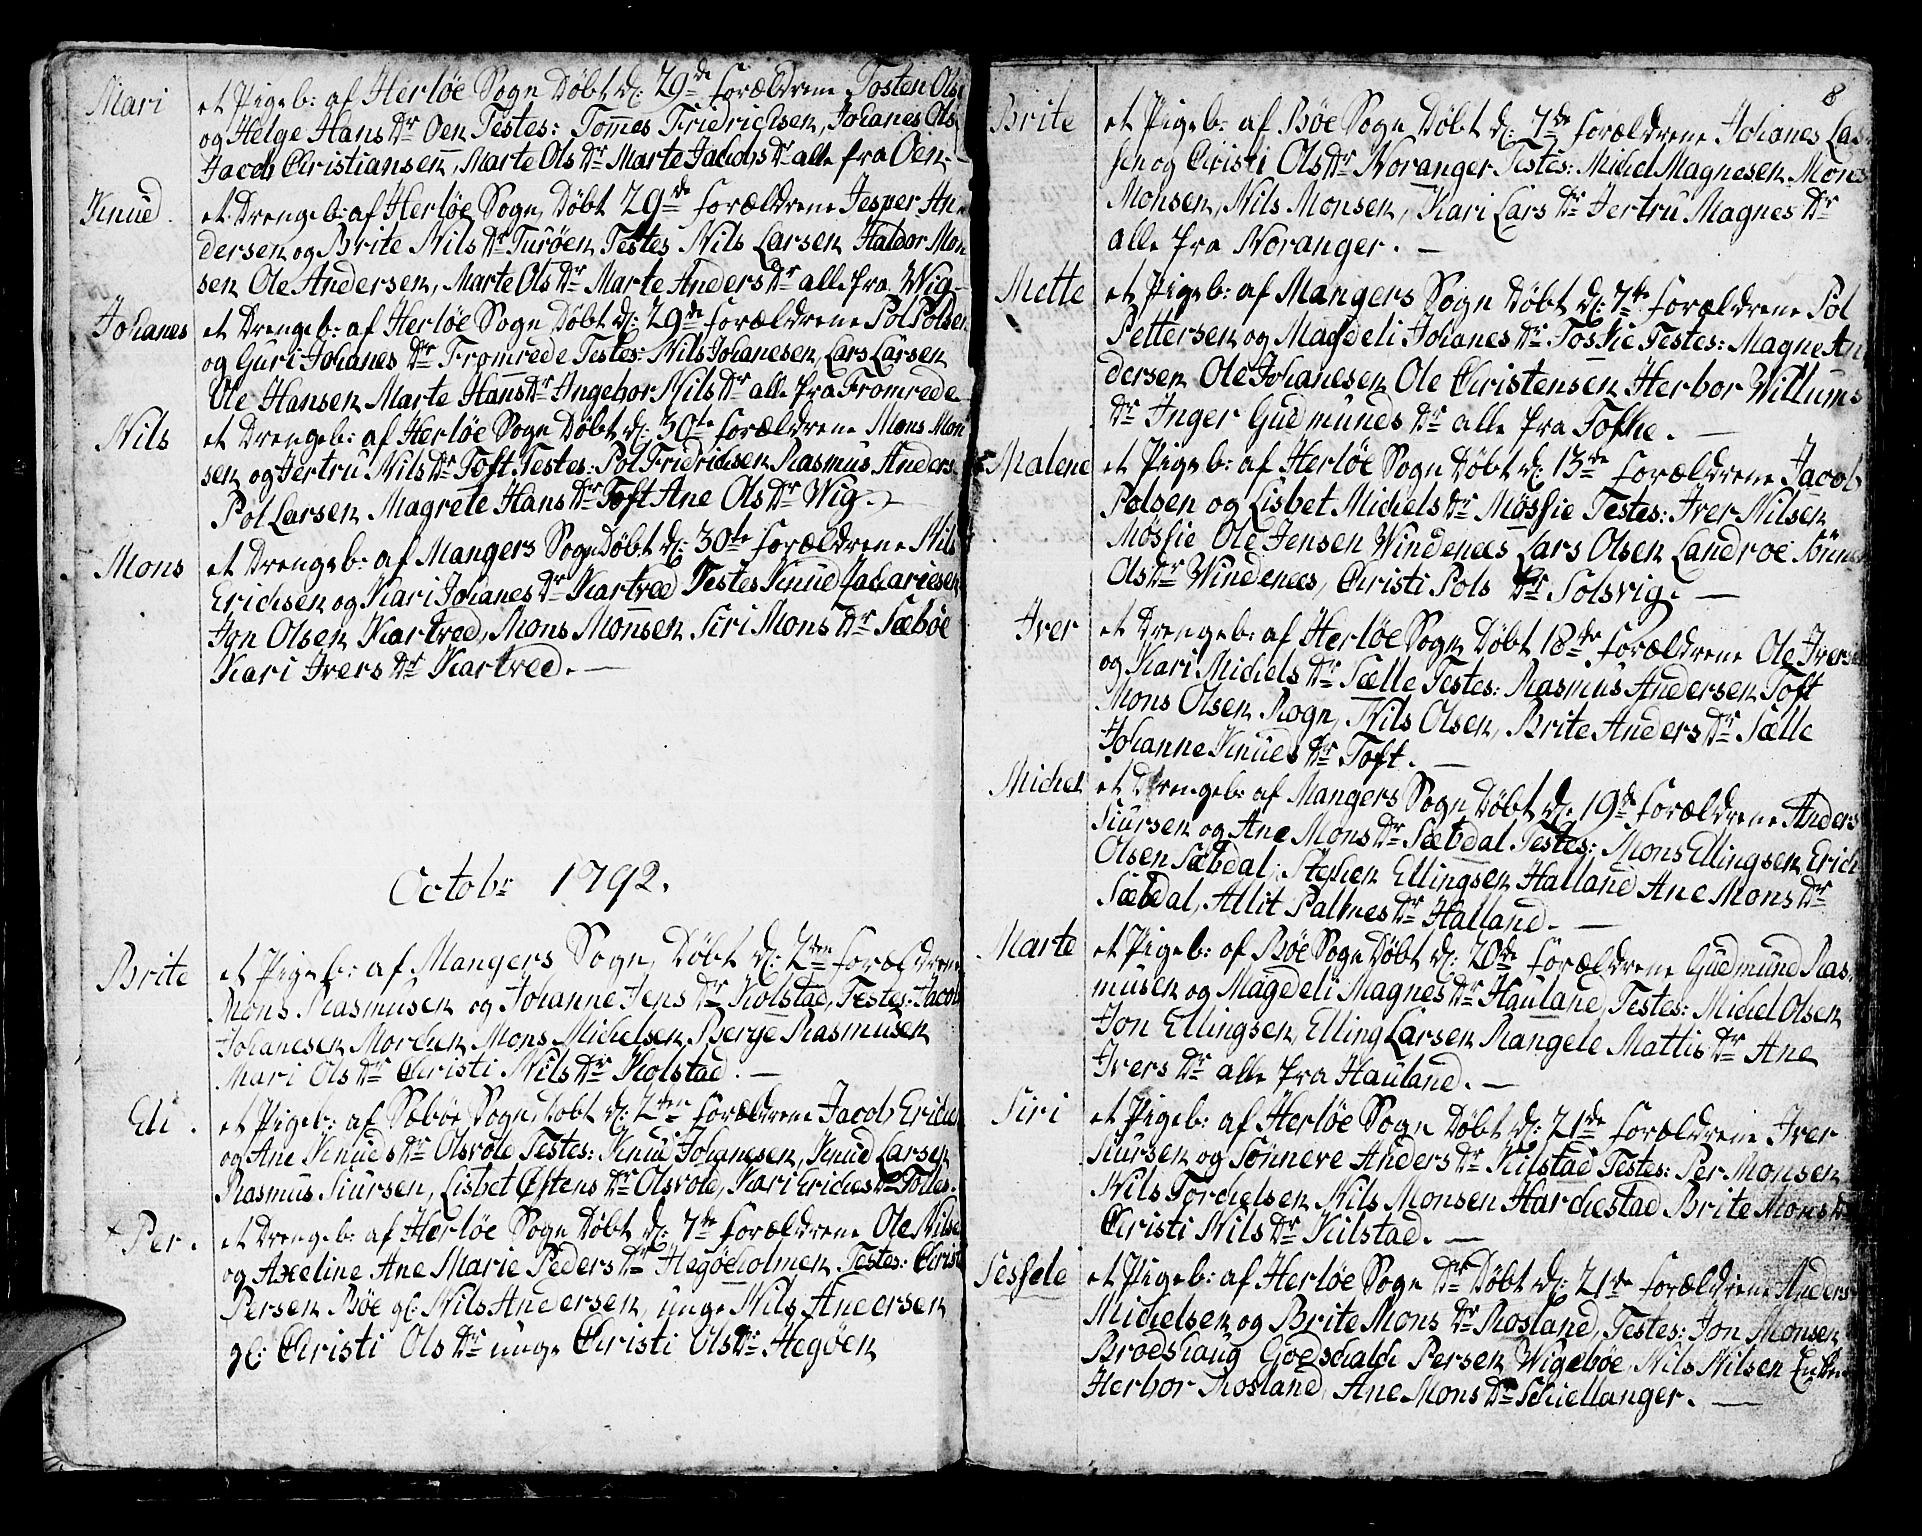 Mari et Pigeb: af Herløe Sogn Døbt d: 29de forældrene Tosten Ols
og Helge Hans Dr Oen Testes: Tom̄es Fridrichsen, Johanes Ols
Jacob Christiansen, Marte Ols Dr Marte Jacobs Dr alle fra Oen.
Knud. et Drengeb: af Herløe Sogn, Døbt 29de forældrene Jesper An
dersen og Brite Nils Dr Turøen Testes Nils Larsen Haldor Mon
sen Ole Andersen, Marte Ols Dr Marte Anders Dr alle fra Wig
Johanes et Drengeb: af Herløe Sogn Døbt d: 29de forældrene Pol Polsen
og Guri Johanes Dr Fromrede Testes: Nils Johanesen, Lars Larsen
Ole Hansen Marte Hans Dr Ingebor Nils Dr alle fra Fromrede
Nils et Drengeb: af Herløe Sogn Døbt d: 30te forældrene Mons Mon
sen og Jertru Nils Dr Toft Testes: Pol Fridrichsen Rasmus Anders
Pol Larsen Magrete Hans Dr Toft Ane Ols Dr Wig.
Mons et Drengeb: af Mangers Sogn Døbt d: 30te forældrene Nils
Erichsen og Kari Johanes Dr Kartved Testes Knud Zachariesen
Jon Olsen Kartved, Mons Monsen Siri Mons Dr Sæbøe
Kari Ivers Dr Kartved. —
Octobr 1792.
Brite et Pigeb: af Mangers Sogn, Døbt d: 2den forældrene
Mons Rasmusen og Johanne Jens Dr Kolstad, Testes: Jacob
Johanesen Mons Michelsen, Berge Rasmusen
Mari Ols Dr Christi Nils Dr Kolstad. —
Eli. et Pigeb: af Sæbøe Sogn Døbt d: 2den forældrene Jacob Erichs
og Ane Knuds Dr Olsvold Testes: Knud Johanesen, Knud Larsen
Rasmus Siursen, Lisbet Østens Dr Olsvold, Kari Erichs Dr
Per. et Drengeb: af Herløe Sogn Døbt d: 7de forældrene Ole Nilse
og Axeline Ane Marie Peders Dr Hegøeholmen Testes: Christ
Persen Bøe gl: Nils Andersen, unge Nils Andersen
gl: Christi Ols Dr unge Christi Ols Dr Hegøen
8
Brite et Pigeb: af Bøe Sogn Døbt d: 7de forældrene Johanes Lar
sen og Christi Ols Dr Noranger Testes: Michel Magnesen Mons
Monsen, Nils Monsen, Kari Lars Dr Jertru Magnes Dr
alle fra Noranger. —
Mette et Pigeb: af Mangers Sogn Døbt d: 7de forældrene Pol
Pettersen og Magdeli Johanes Dr Toskie Testes: Magne An
dersen Ole Johanesen Ole Christensen Herbor Willums
Dr Inger Gudmunds Dr alle fra Toskie. —
Malene et Pigeb: af Herløe Sogn Døbt d: 13de forældrene Jacob
Polsen og Lisbet Michels Dr Møssie Testes: Iver Nilsen
Møssie Ole Jensen Windenees Lars Olsen Landroe
Ols Dr Windenees, Christi Pols Dr Solsvig. —
Iver et Drengeb: af Herløe Sogn Døbt 18de forældrene Ole Iverse
og Kari Michels Dr Sælle Testes: Rasmus Andersen Toft
Mons Olsen Rogn, Nils Olsen, Brite Anders Dr Sælle
Johanne Knuds Dr Toft. —
Michel et Drengeb: af Mangers Sogn Døbt d: 19de forældrene Anders
Siursen og Ane Mons Dr Sæbdal Testes: Mons Ellingsen Erich
Olsen Sæbdal, Stephen Ellingsen Halland Ane Mons Dr
Sæbdal, Allit Palmes Dr Halland. —
Marte et Pigeb: af Bøe Sogn Døbt d: 20de forældrene Gudmund Ras
musen og Magdeli Magnes Dr Hauland, Testes: Michel Olsen
Jon Ellingsen, Elling Larsen Rangele Mattis Dr Ane
Ivers Dr alle fra Hauland. —
Siri et Pigeb: af Herløe Sogn Døbt d: 21de forældrene Iver
Siursen og Sønneve Anders Dr Kilstad Testes: Per Monsen
Nils Torchelsen Nils Monsen Harchestad Brite Mons Dr
Christi Nils Dr Kilstad. —
Sessele et Pigeb: af Herløe Sogn Dr Døbt d: 21de forældrene Anders
Michelsen og Brite Mons Dr Rosland, Testes: Jon Monsen
Brodshaug Godschalch Persen Wigebøe, Nils Nilsen
Herbor Rosland, Ane Mons Dr Schiellanger. —